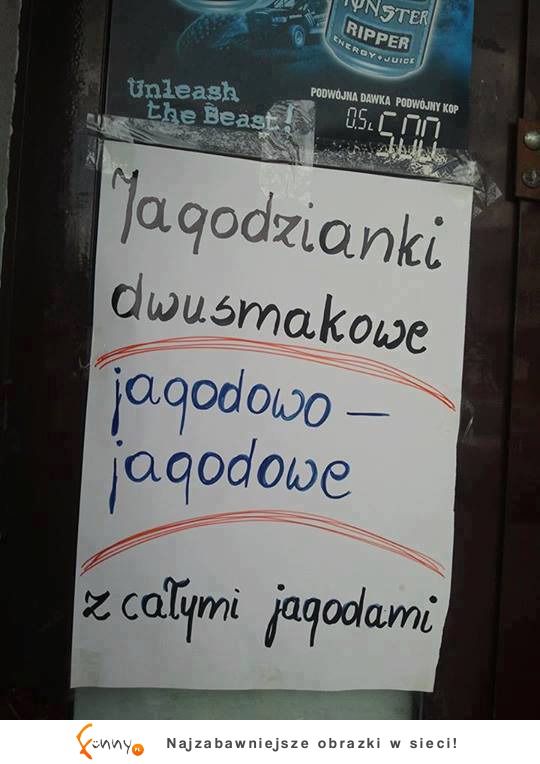 MONSTER
RIPPER
ENERGY+JUICE
Unleash
the Beast!
PODWÓJNA DAWKA PODWÓJNY KOP
0.5L 5,00
Jagodzianki
dwusmakowe
jagodowo –
jagodowe
z całymi jagodami
Funny.PL Najzabawniejsze obrazki w sieci!